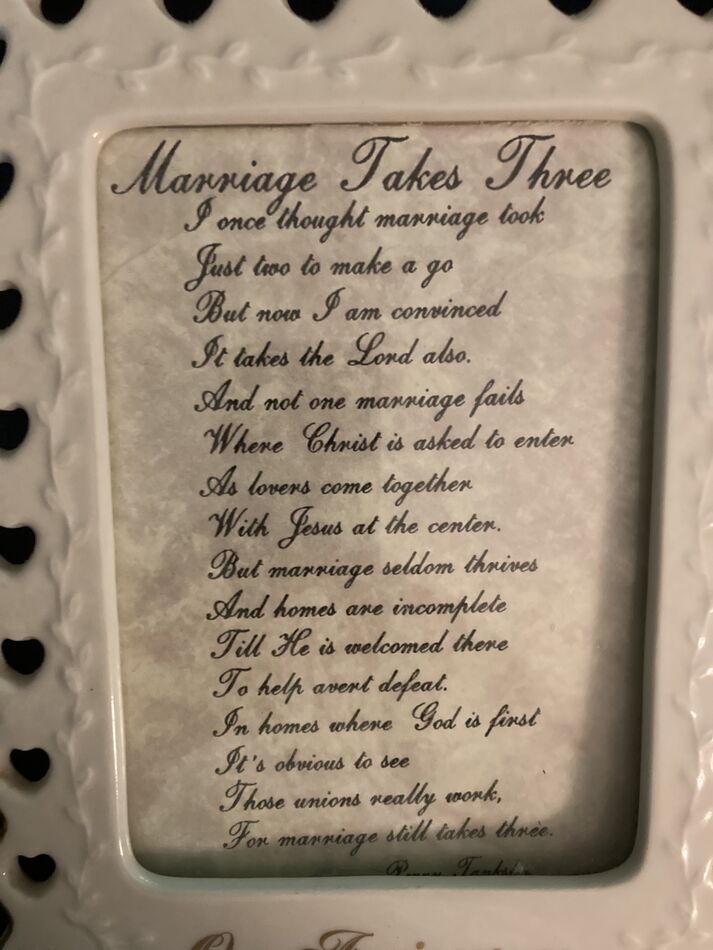 Marriage Takes Three
I once thought marriage took
Just two to make a go
But now I am convinced
It takes the Lord also.
And not one marriage fails
Where Christ is asked to enter
As lovers come together
With Jesus at the center.
But marriage seldom thrives
And homes are incomplete
Till He is welcomed there
To help avert defeat.
In homes where God is first
It's obvious to see
Those unions really work,
For marriage still takes three.